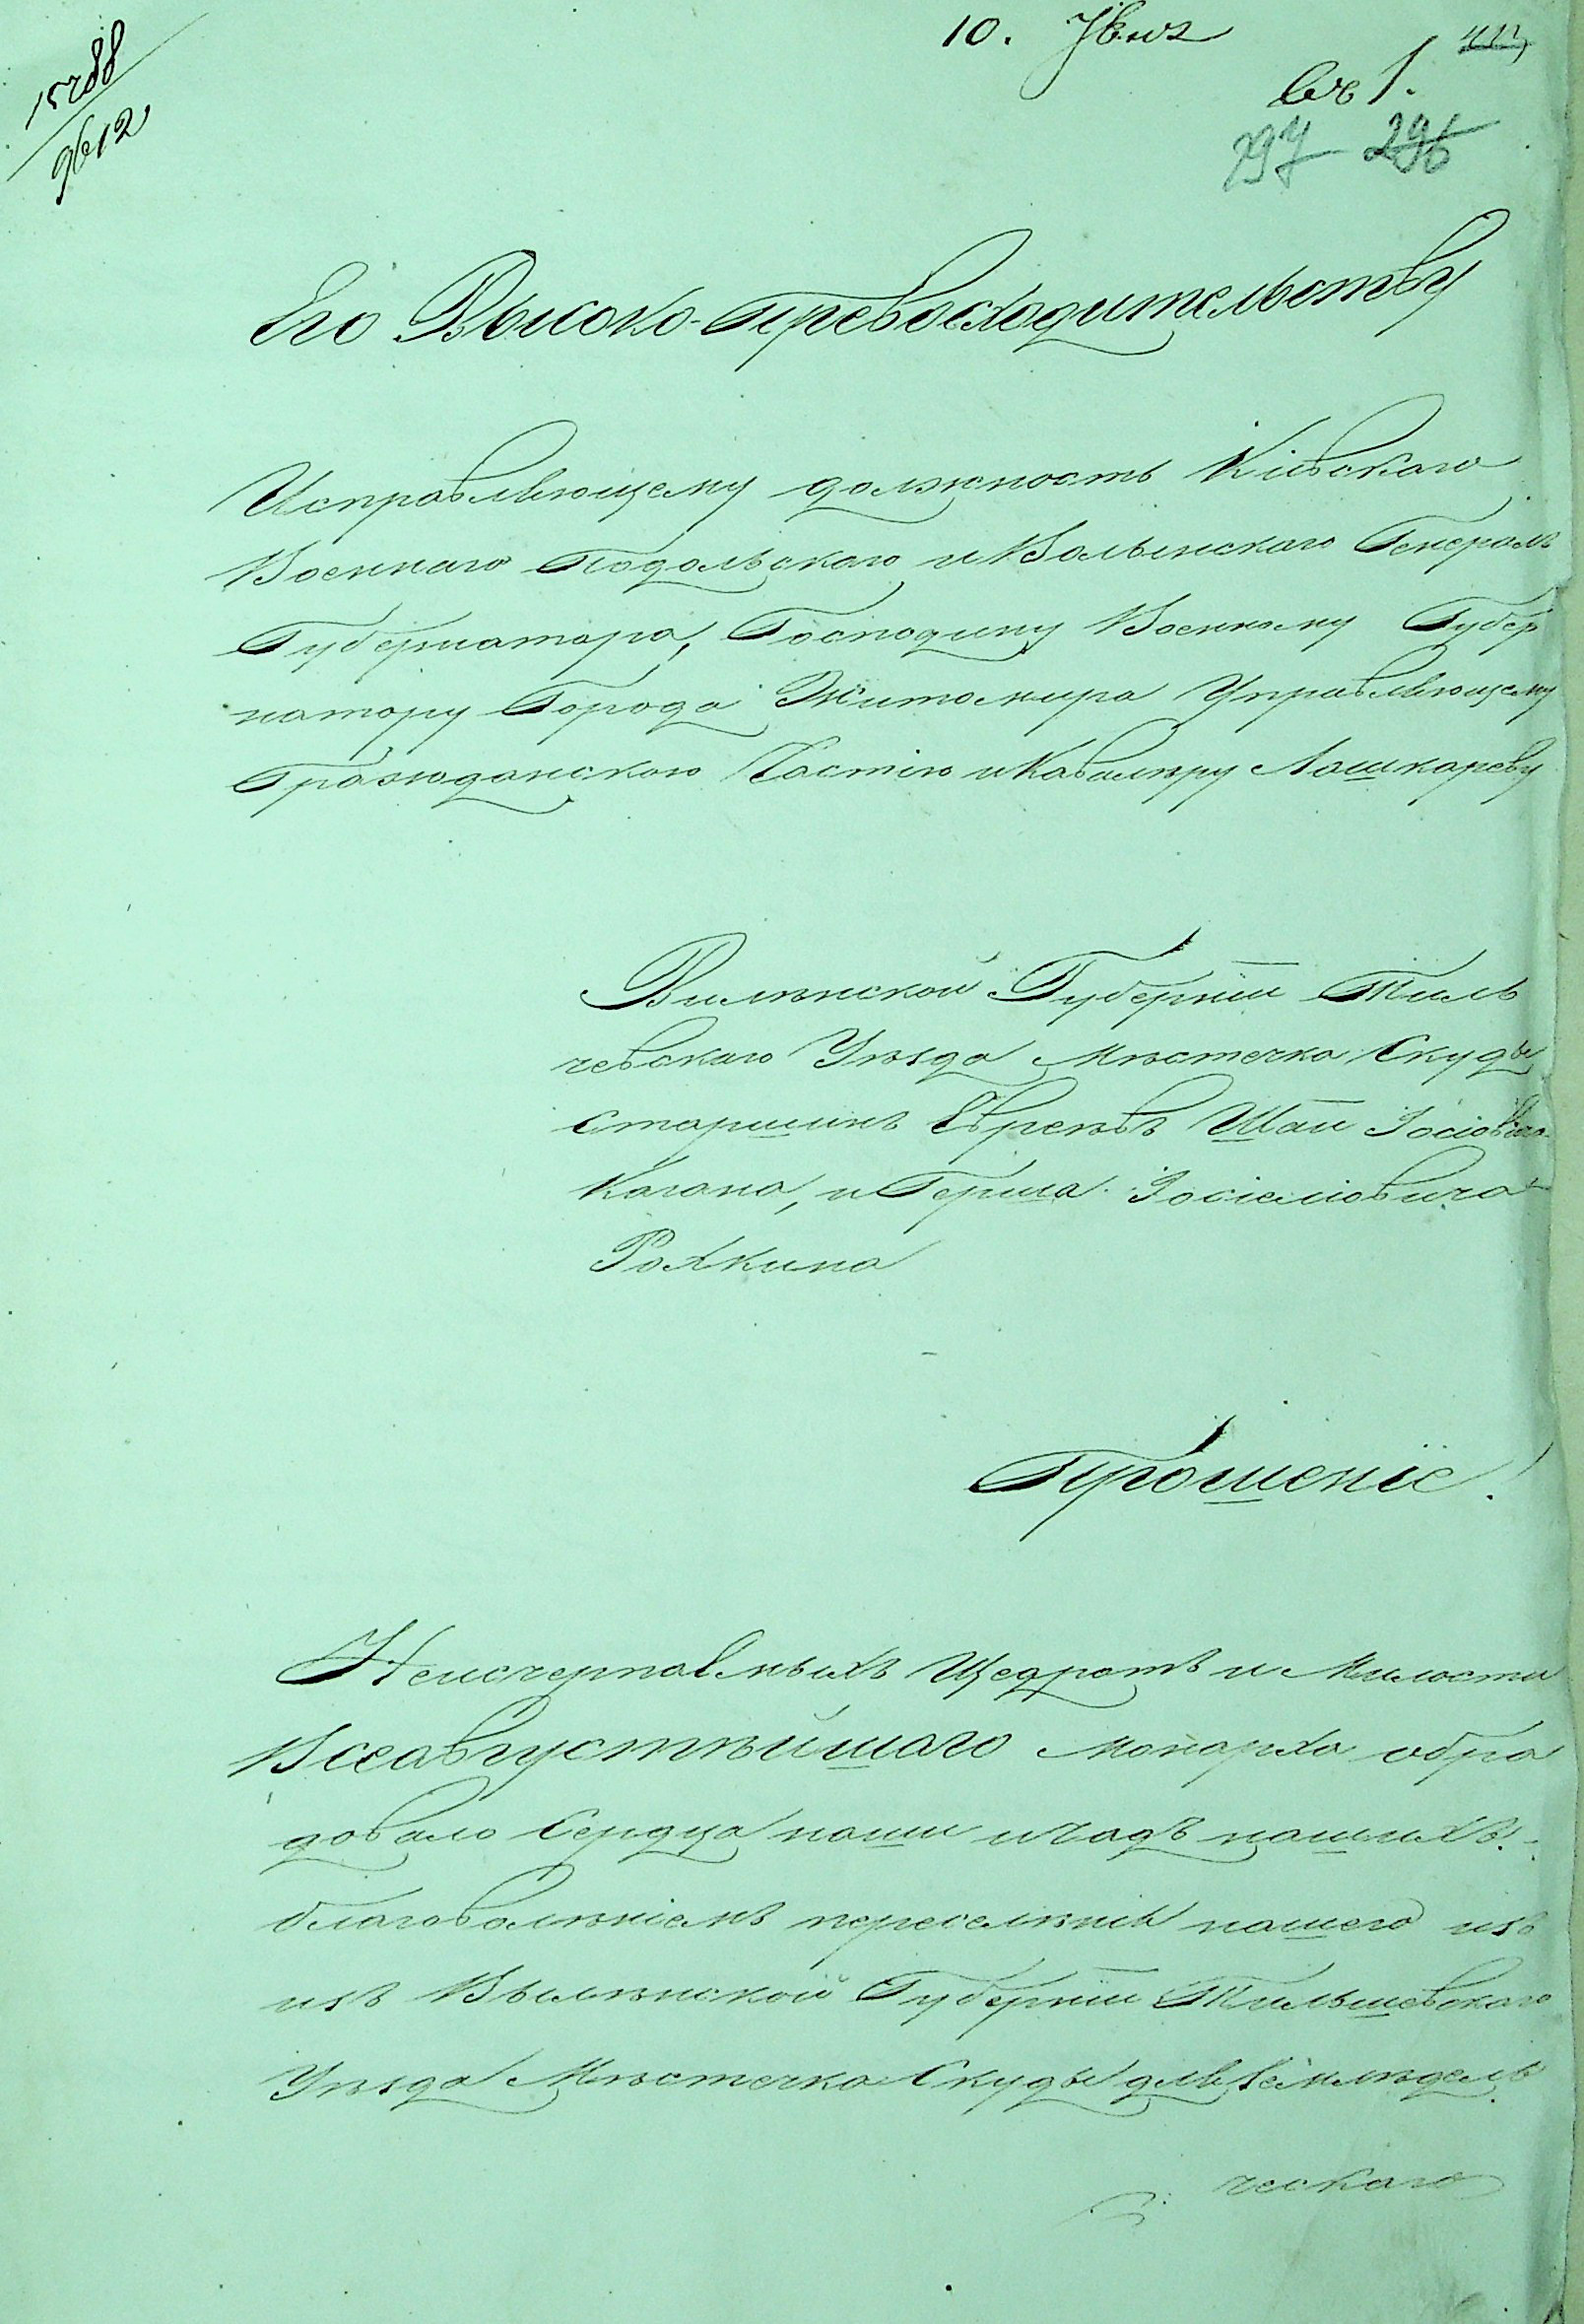 15288
9612
10.
297 296
Его Высоко-превосходительству
Исправляющему должность Кіевскаго
Военнаго Подольскаго и Волынскаго Генералъ
Губернатора, Господину Военному Губер
натору Города Житомира Управляющему
Гражданскою Частію и Кавалеру Лашкареву
Виленской Губерніи Тиль
чевскаго Уѣзда Мѣстечка Скуды
старшинъ Евреевъ Шаи
Кагана, и Герша Іосіеліовича
Рохкина
Прошеніе!
Неисчерпаемыхъ Щедротъ и Милости
Всеавгустѣйшаго Монарха обра
довало Сердца наши и чадъ нашихъ.
благоволѣніемъ переселѣнія нашего изъ
изъ Вылѣнской Губерніи Тильшевскаго
Уѣзда Мѣстечка Скуды для Земледель
ческаго